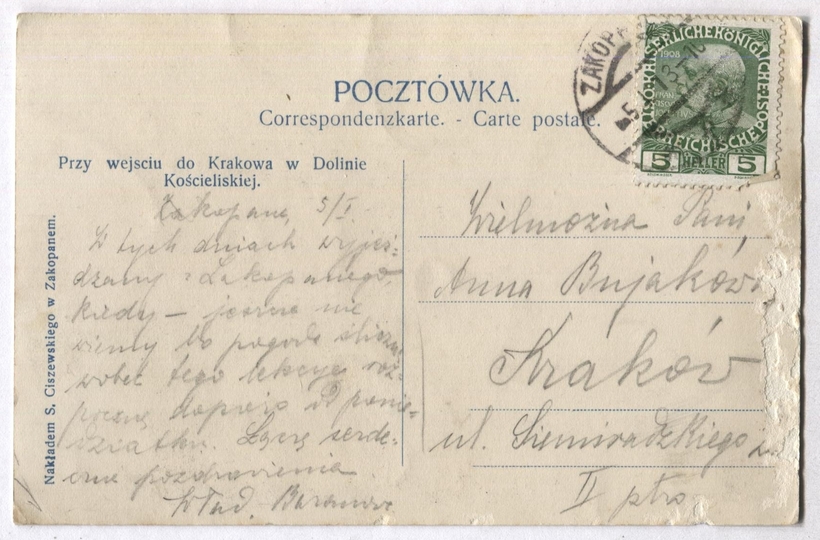 POCZTÓWKA.
Correspondenzkarte. - Carte postale.
Przy wejsciu do Krakowa w Dolinie
Kościeliskiej.
Nakładem S. Ciszewskiego w Zakopanem.
Zakopane, 5/I.
W tych dniach wyjeż-
dżamy z Zakopanego,
kiedy — jeszcze nie
wiemy bo pogoda śliczna
wobec tego lekcye roz-
pocznę dopiero od ponie-
działku. Łączę serde-
czne pozdrowienia
Wład.
Wielmożna Pani
Anna Bujakówna
Kraków
ul. Siemiradzkiego
II ptro
ZAKOPA
KAISERLICHE KÖNIGLICHE ÖSTERREICHISCHE
1908
5 HELLER 5